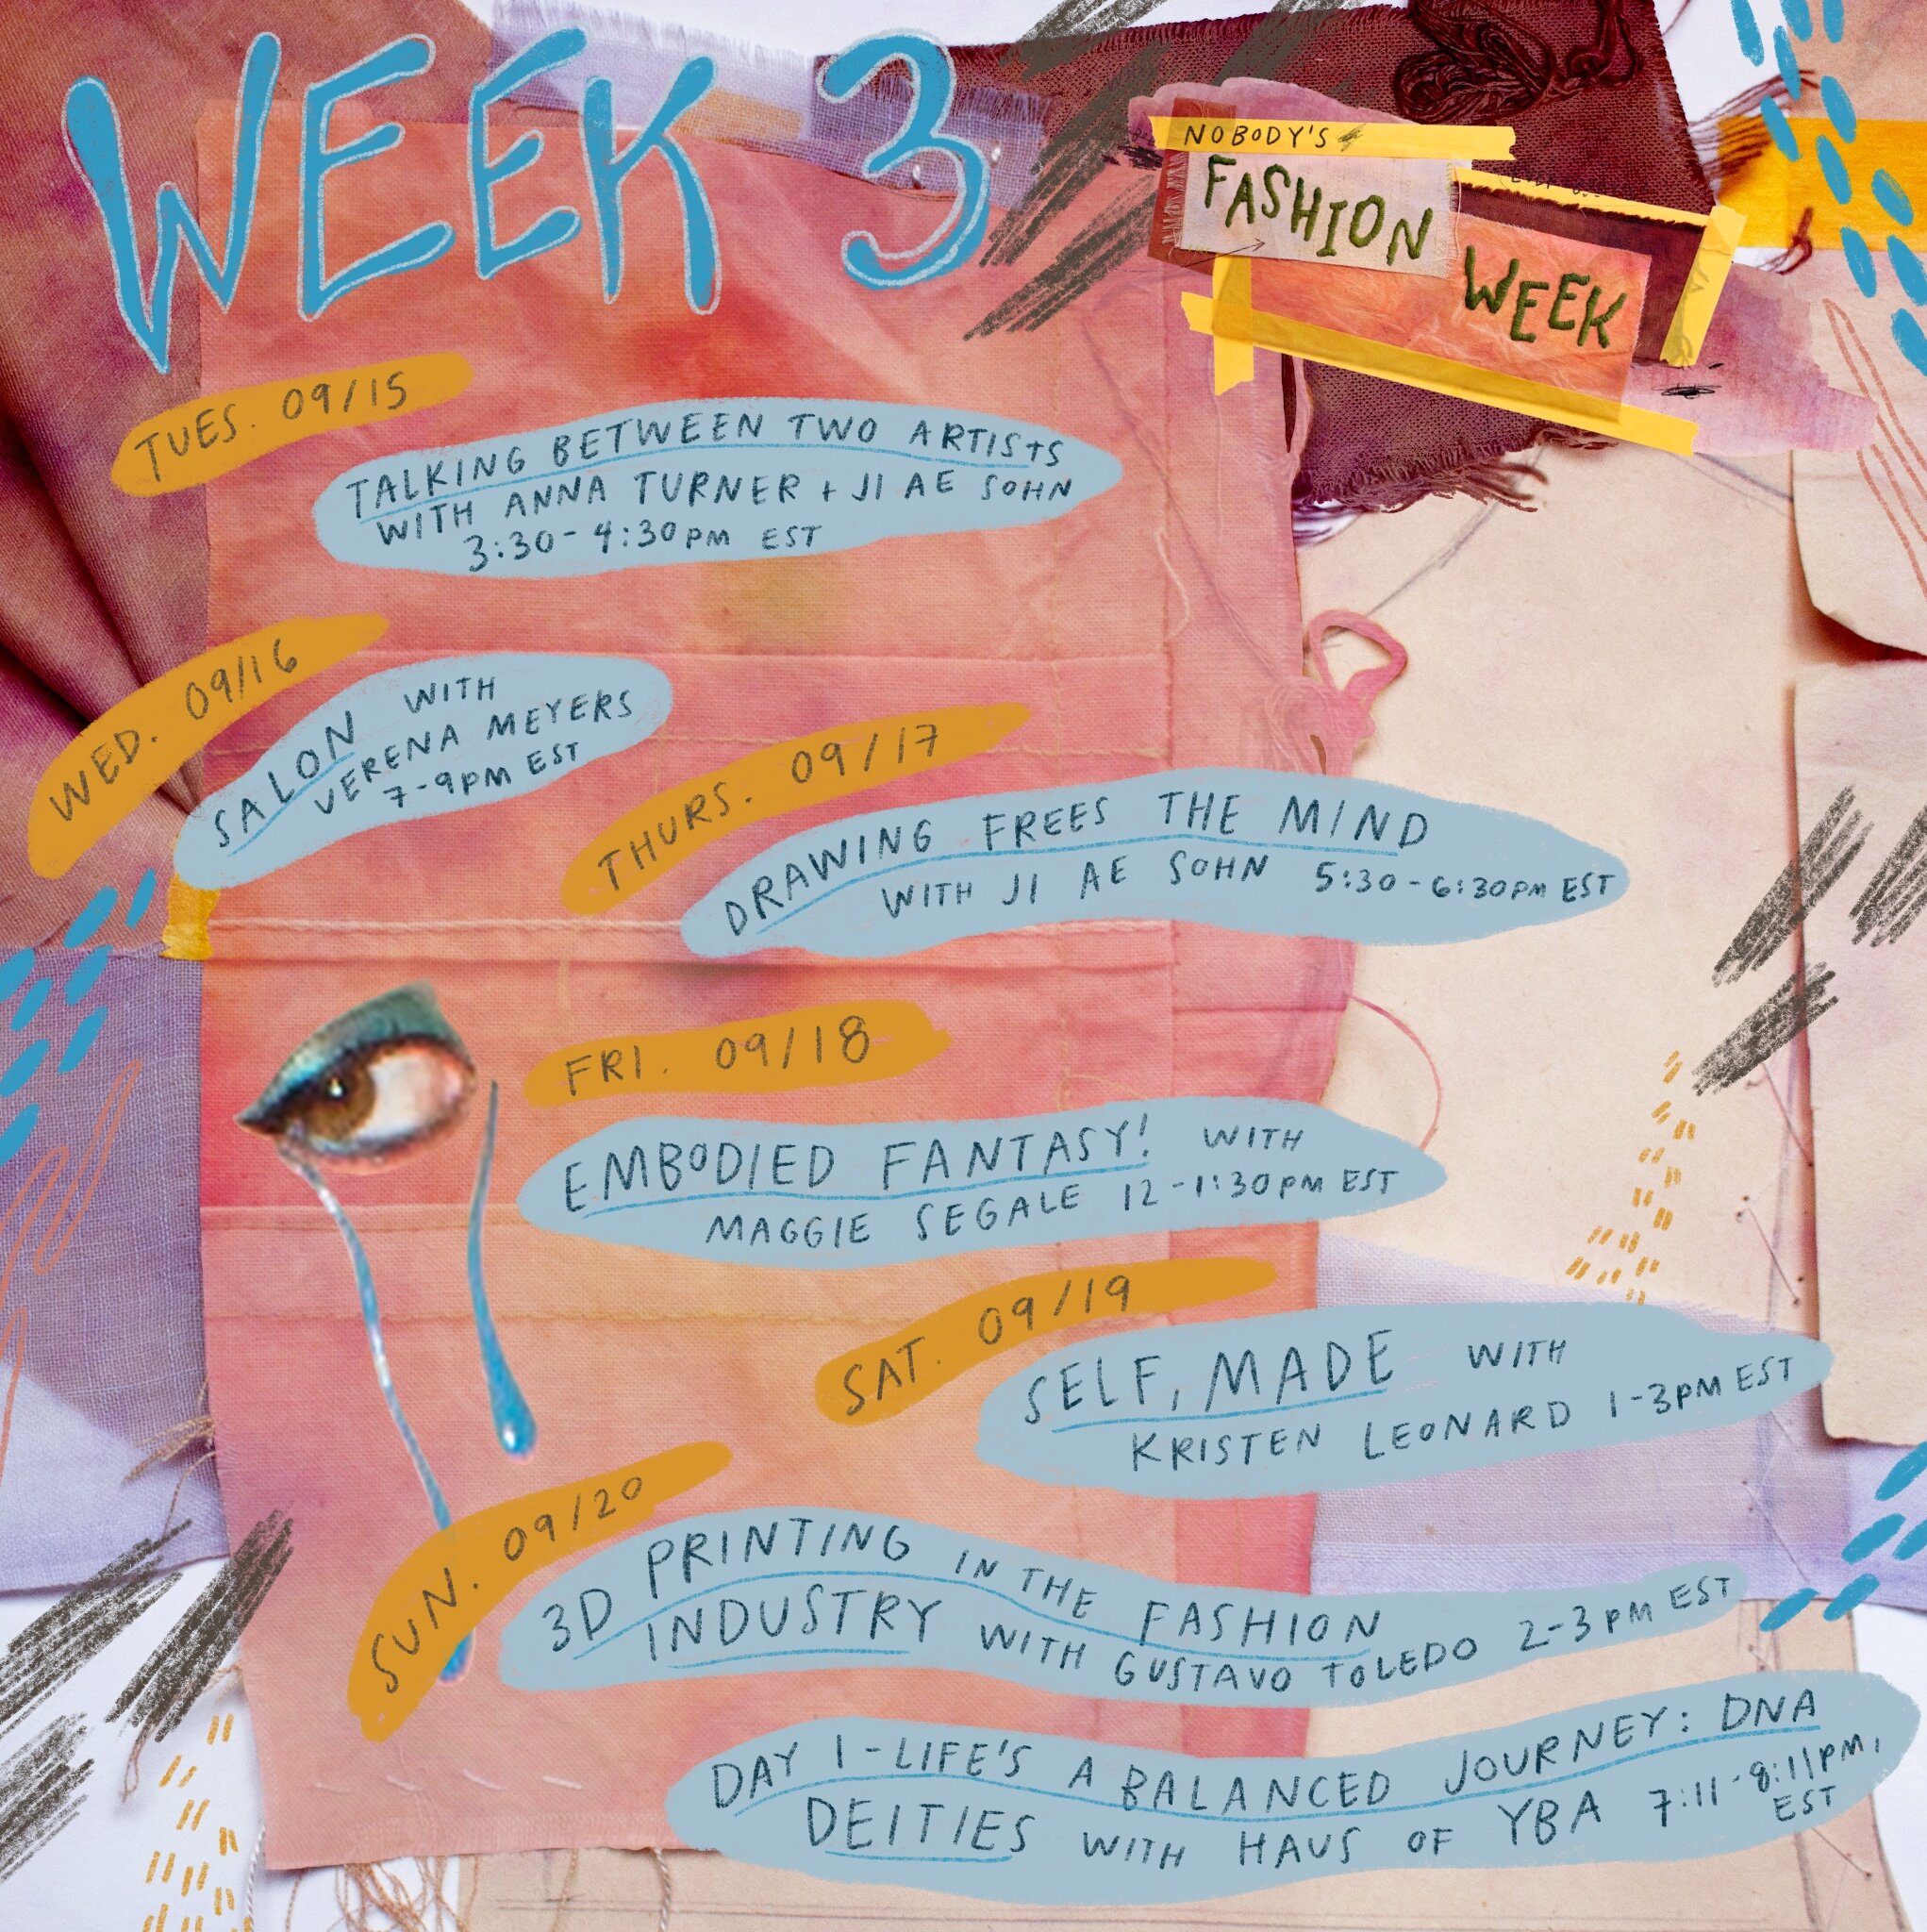 WEEK 3
NOBODY'S
FASHION
WEEK
TUES. 09/15
TALKING BETWEEN TWO ARTISTS
WITH ANNA TURNER + JI AE SOHN
3:30-4:30PM EST
WED. 09/16
SALON WITH
VERENA MEYERS
7-9PM EST
THURS. 09/17
DRAWING FREES THE MIND
WITH JI AE SOHN 5:30-6:30PM EST
FRI. 09/18
EMBODIED FANTASY! WITH
MAGGIE SEGALE 12-1:30PM EST
SAT. 09/19
SELF, MADE WITH
KRISTEN LEONARD 1-3PM EST
SUN. 09/20
3D PRINTING IN THE FASHION
INDUSTRY WITH GUSTAVO TOLEDO 2-3PM EST
DAY 1-LIFE'S A BALANCED JOURNEY: DNA
DEITIES WITH HAUS OF YBA 7:11-8:11PM,
EST